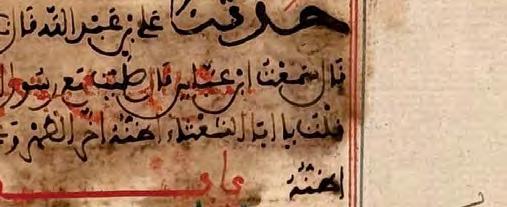 حدثنا علي بن عبد الله قال
قال سمعت ابن عباس قال صليت مع رسول
قلت يا ابا الشعثاء اظنه اخر الظهر
اظنه باب